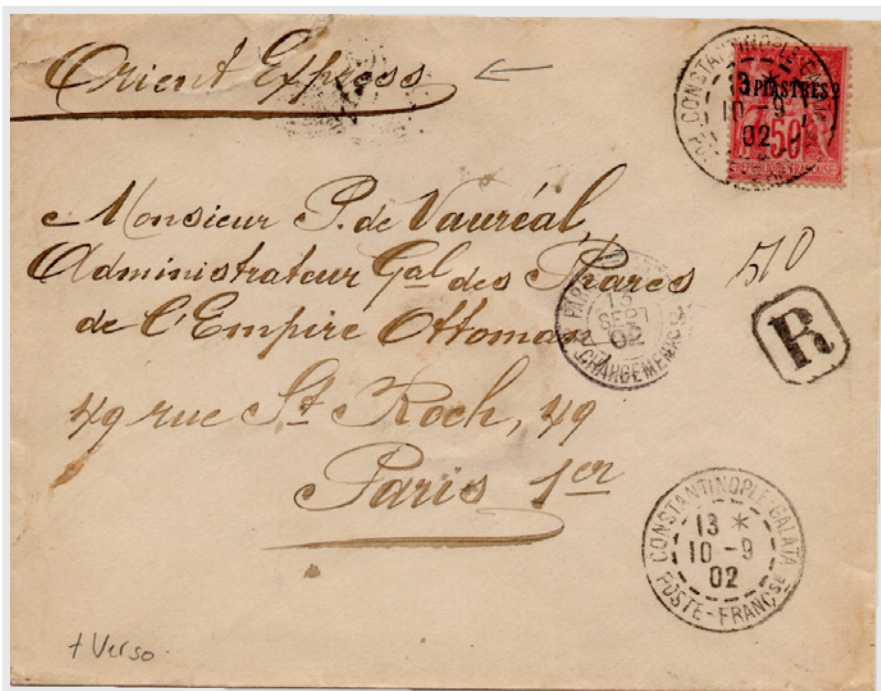 Orient Express
CONSTANTINOPLE-GALATA
13 *
10-9
02
2 PIASTRES 2
50
REPUBLIQUE FRANCAISE
Monsieur P. de Vauréal,
Administrateur Gal des Phares
de l'Empire Ottoman
510
PARIS
13
SEPT
02
CHARGEMENTS
R
49 rue St Roch, 49
Paris 1er
CONSTANTINOPLE-GALATA
13 *
10-9
02
POSTE-FRANÇSE
+ Verso